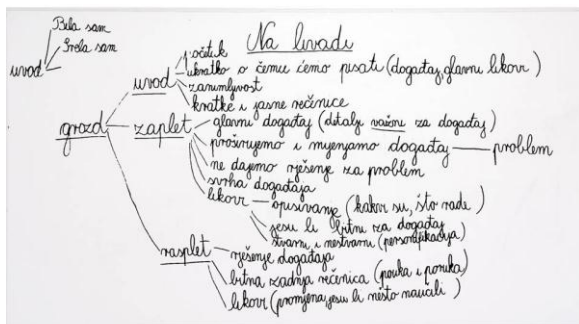 Bila sam
Srela sam
uvod
Na livadi
početak
uvod
ukratko o čemu ćemo pisati (događaj, glavni likovi)
zanimljivost
kratke i jasne rečenice
grozd
zaplet
glavni događaj (detalji važni za događaj)
proširujemo i mijenjamo događaj — problem
ne dajemo rješenje za problem
svrha događaja
likovi — opisivanje (kakvi su, što rade)
jesu li bitni za događaj
stvarni i nestvarni (personifikacija)
rasplet
rješenje događaja
bitna zadnja rečenica (pouka i poruka)
likovi (promjena, jesu li nešto naučili)